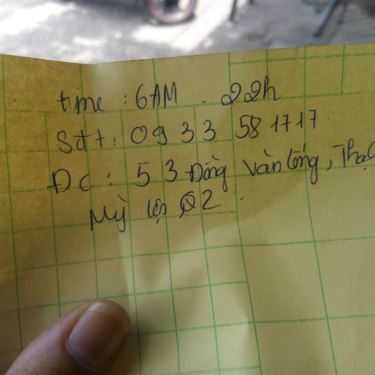 time : 6AM . 22h
Sđt : 09 33 58 17 17
ĐC : 53 Đồng Văn Cống, Thạ
Mỹ Lợi Q2.